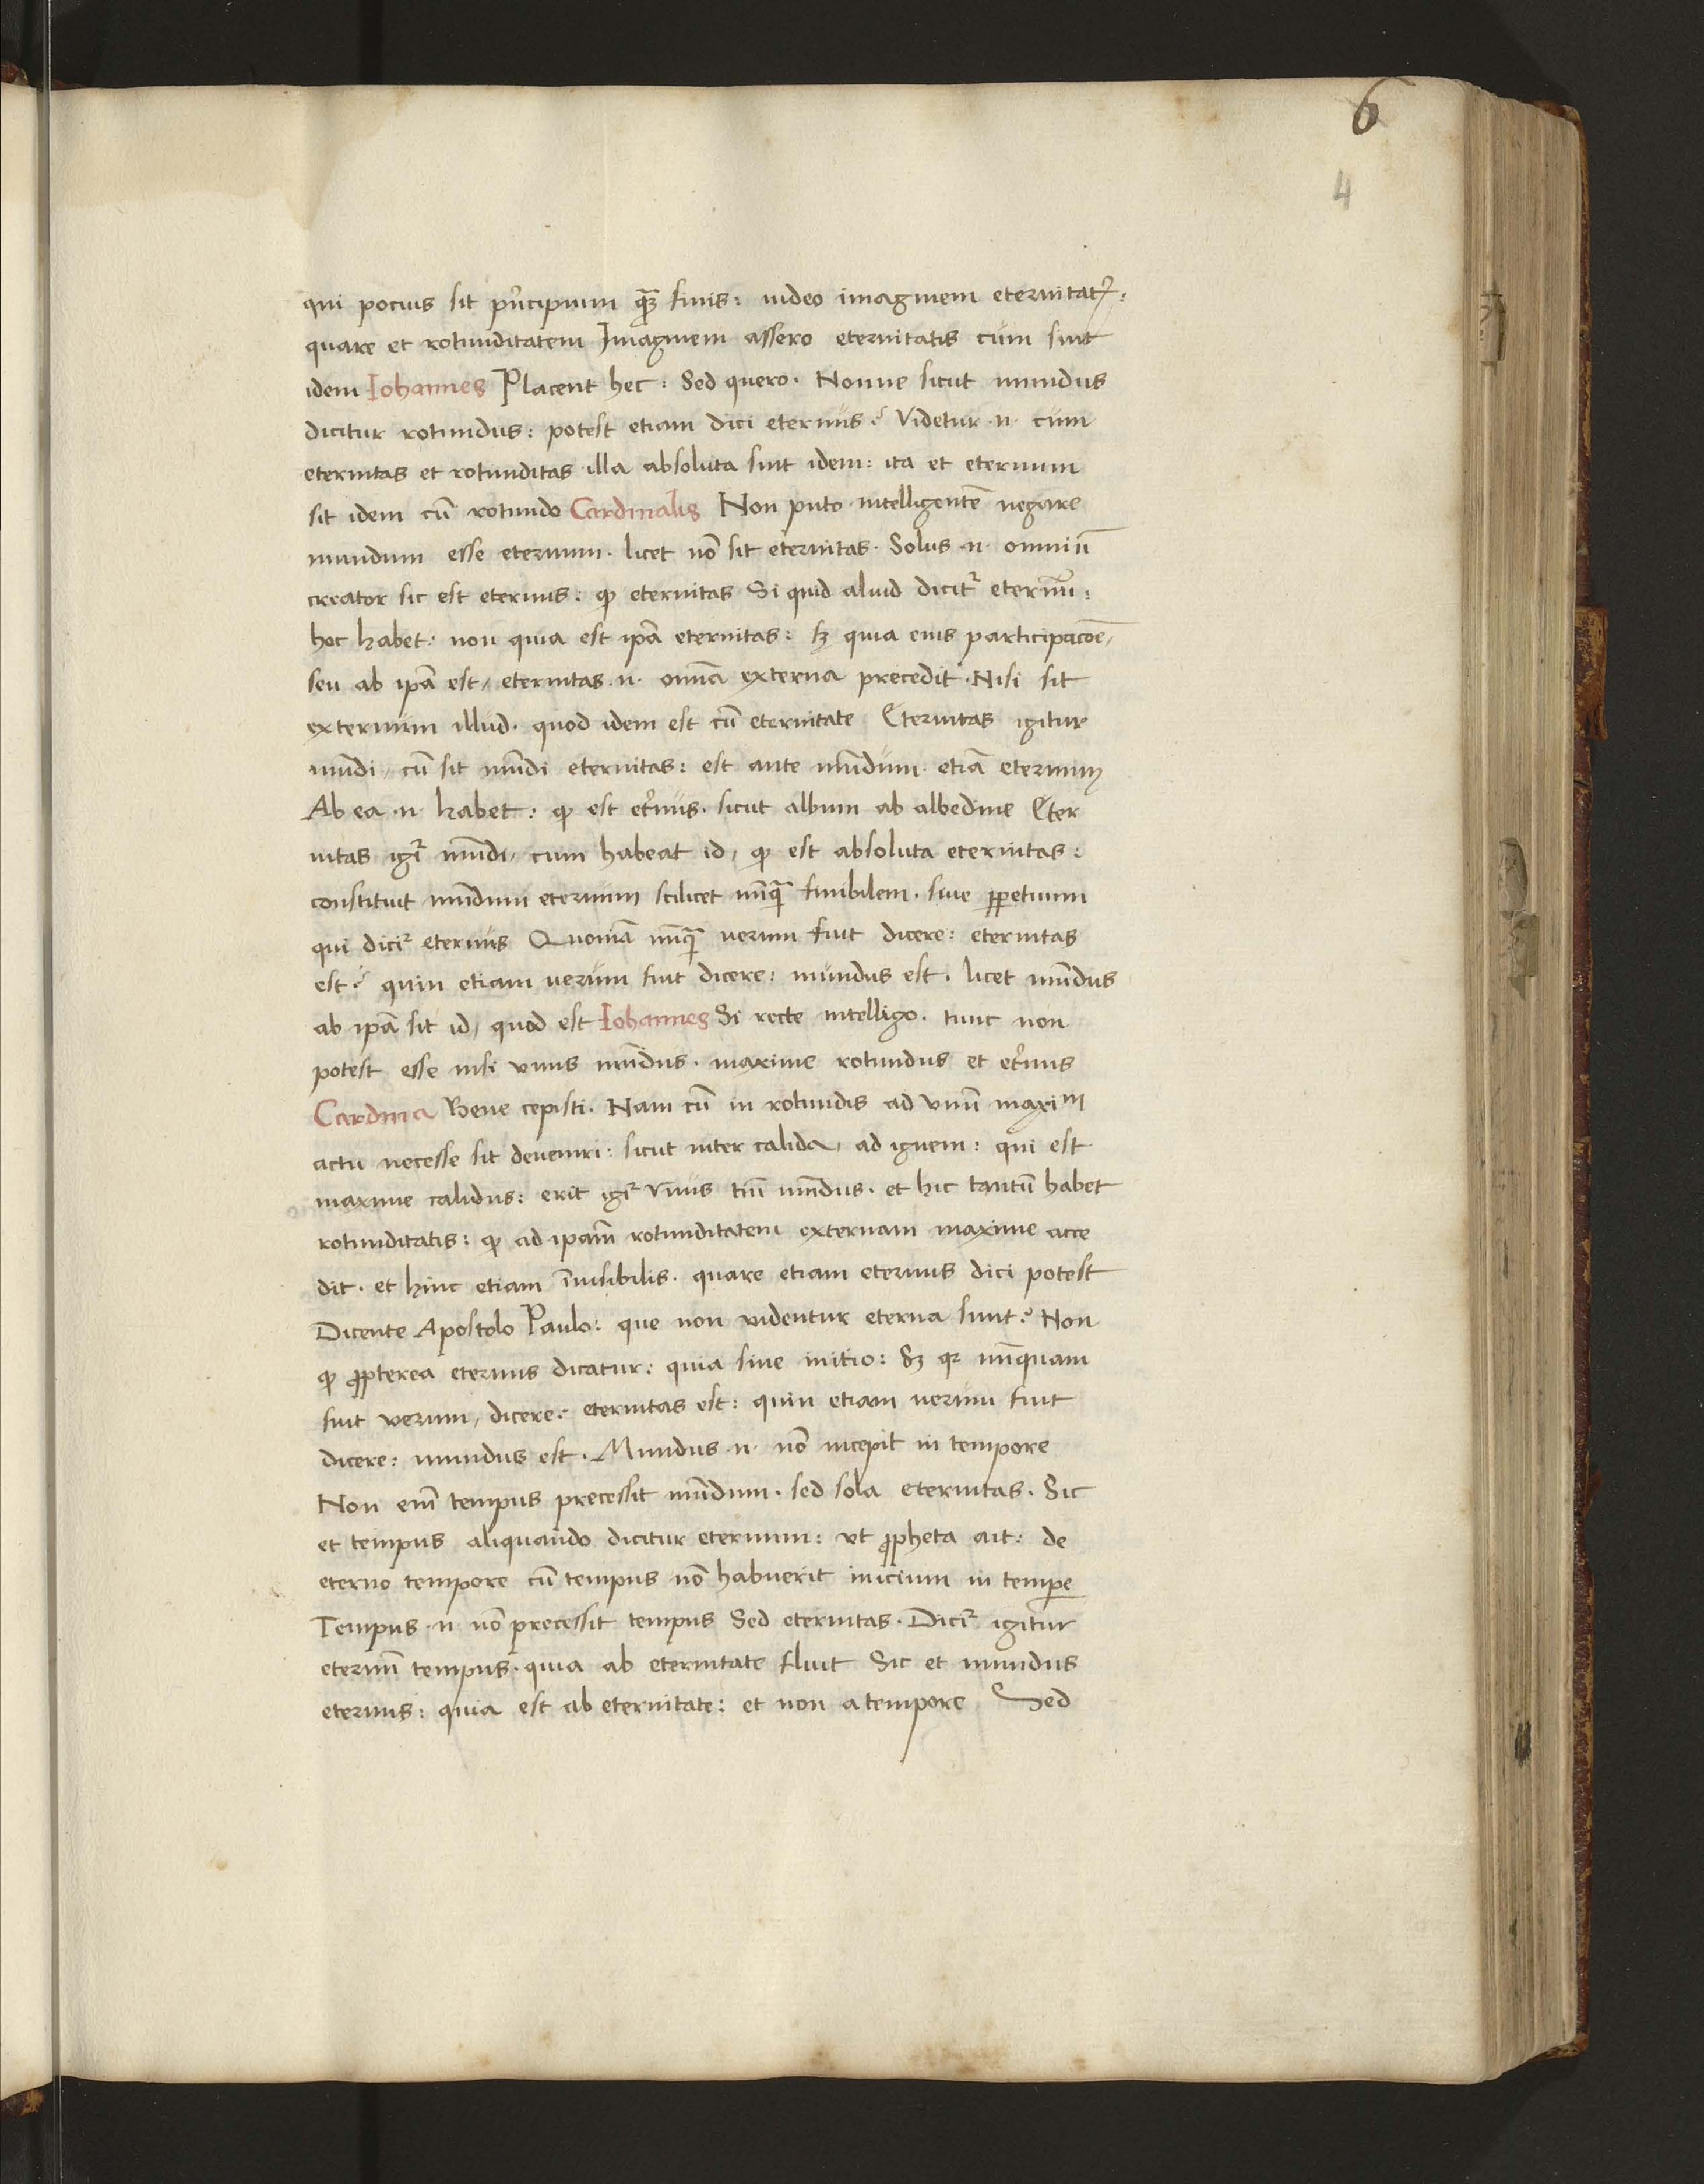 6
4
qui pocius sit pͥncipium qͣꝫ finis: uideo imaginem eternitatꝭ:
quare et rotunditatem Imaginem assero eternitatis cum sint
idem Iohannes Placent hec: Sed quero. Nonne sicut mundus
dicitur rotundus: potest etiam dici eternus? Videtur .n. cum
eternitas et rotunditas illa absoluta sint idem: ita et eternum
sit idem cū rotundo Cardinalis Non puto intelligentē negare
mundum esse eternum. licet nō sit eternitas. Solus .n. omniū
creator sic est eternus: ꝙ eternitas Si quid aliud dicit᷑ eternū:
hoc habet: non quia est ip̄a eternitas: sꝫ quia eius participacōe,
seu ab ip̄a est, eternitas .n. omīa externa precedit. Nisi sit
externum illud. quod idem est cū eternitate Eternitas igitur
mūdi, cū sit mūdi eternitas: est ante mūdum etiā eternum
Ab ea .n. habet: ꝙ est et̓nus. sicut album ab albedine Eter
nitas igr̄ mūdi, cum habeat id, ꝙ est absoluta eternitas:
constituit mūdum eternum scilicet nūqͣ finibilem. siue ꝑpetuum
qui dici᷑ eternus Quoniā nūqͣ uerum fuit dicere: eternitas
est? quin etiam uerum fuit dicere: mundus est. licet mūdus
ab ip̄a sit id, quod est Iohannes Si recte intelligo. tunc non
potest esse nisi vnus mūdus. maxime rotundus et et̓nus
Cardina Bene cepisti. Nam cū in rotundis ad vnū maxim
actu necesse sit deueniri: sicut inter calida, ad ignem: qui est
maxime calidus: erit igr̄ vnus tm̄ mūdus. et hic tantū habet
rotunditatis: ꝙ ad ip̄am rotunditatem externam maxime acce
dit. et hinc etiam īuisibilis. quare etiam eternus dici potest
Dicente Apostolo Paulo: que non videntur eterna sunt? Non
ꝙ ꝓpterea eternus dicatur: quia sine initio: Sꝫ qꝛ nūquam
fuit verum, dicere: eternitas est: quin etiam uerum fuit
dicere: mundus est. Mundus .n. nō incepit in tempore
Non em̄ tempus precessit mūdum. sed sola eternitas. Sic
et tempus aliquando dicitur eternum: vt ꝓpheta ait: de
eterno tempore cū tempus nō habuerit inicium in tempe
Tempus .n. nō precessit tempus Sed eternitas. Dici᷑ igitur
eternū tempus. quia ab eternitate fluit Sic et mundus
eternus: quia est ab eternitate: et non a tempore Sed